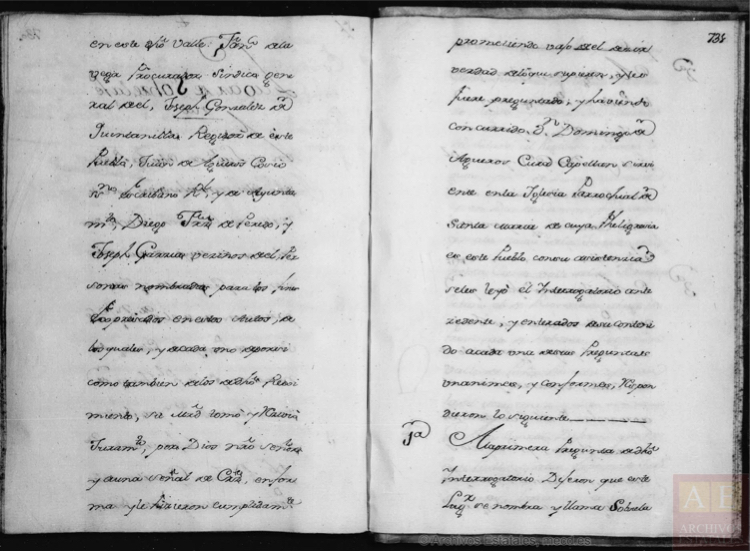 en este dho Valle: Franco de la
Vega Procurador Sindico gene
ral de el, Joseph Gonzalez de
Quintanilla Regidor de este
Pueblo, Juan de
escribano Rl, y de Ayunta
mto, Diego Frnz de, y
Joseph Garcia vecinos de el, Per
sonas nombradas para los fines
expresados en estos Autos, de
los quales, y de cada uno de por si
como tambien de los de dho Pedi
miento, su Mrd tomo y Recivio
Juramto, por Dios nro señor
y a una señal de Cruz, en for
ma y le hizieron cumplidamte
735
prometiendo vajo de el decir
verdad de lo que supieren, y les
fuere preguntado, y haviendo
concurrido Dn Domingo de
Aqueros Cura Capellan sirvi
ente en la Iglesia Parroquial de
Santa Maria de cuya Feligresia
es este Pueblo, con su asistencia
se les leyó el Interrogatorio ante
zedente, y enterados de su conteni
do a cada una de sus Preguntas
unanimes, y conformes, Respon
dieron lo siguiente
1a
A la primera Pregunta de dho
Interrogatorio Dijeron que este
Lugr se nombra y llama Sobrela
AE
ARCHIVOS
ESTATALES
© Archivos Estatales, mecd.es